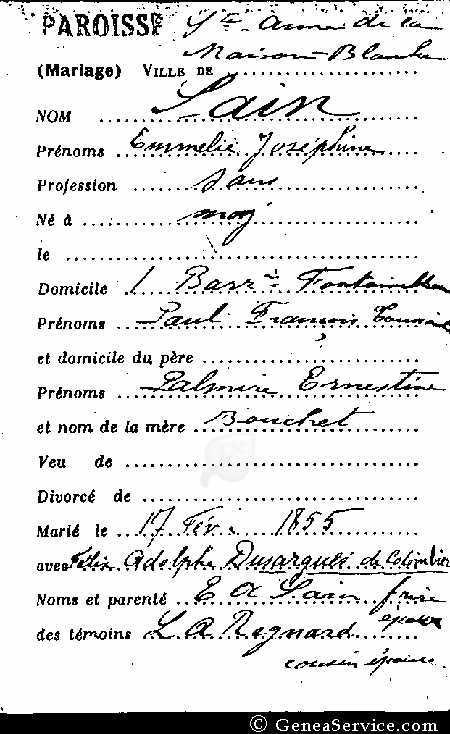 PAROISSE Ste Anne de la
Maison-Blanche
(Mariage) VILLE DE
NOM Sain
Prénoms Emmelie Joséphine
Profession sans
Né à
le
Domicile 1 Barre Fontainebleau
Prénoms Paul François
et domicile du père
Prénoms Palmire Ernestine
et nom de la mère Bouchet
Veu de
Divorcé de
Marié le 17 Fév. 1855
avec Félix Adolphe Dusargues de Colombier
Noms et parenté E A Sain frère
épouse
des témoins L. A. Regnard
cousin épouse
© GeneaService.com